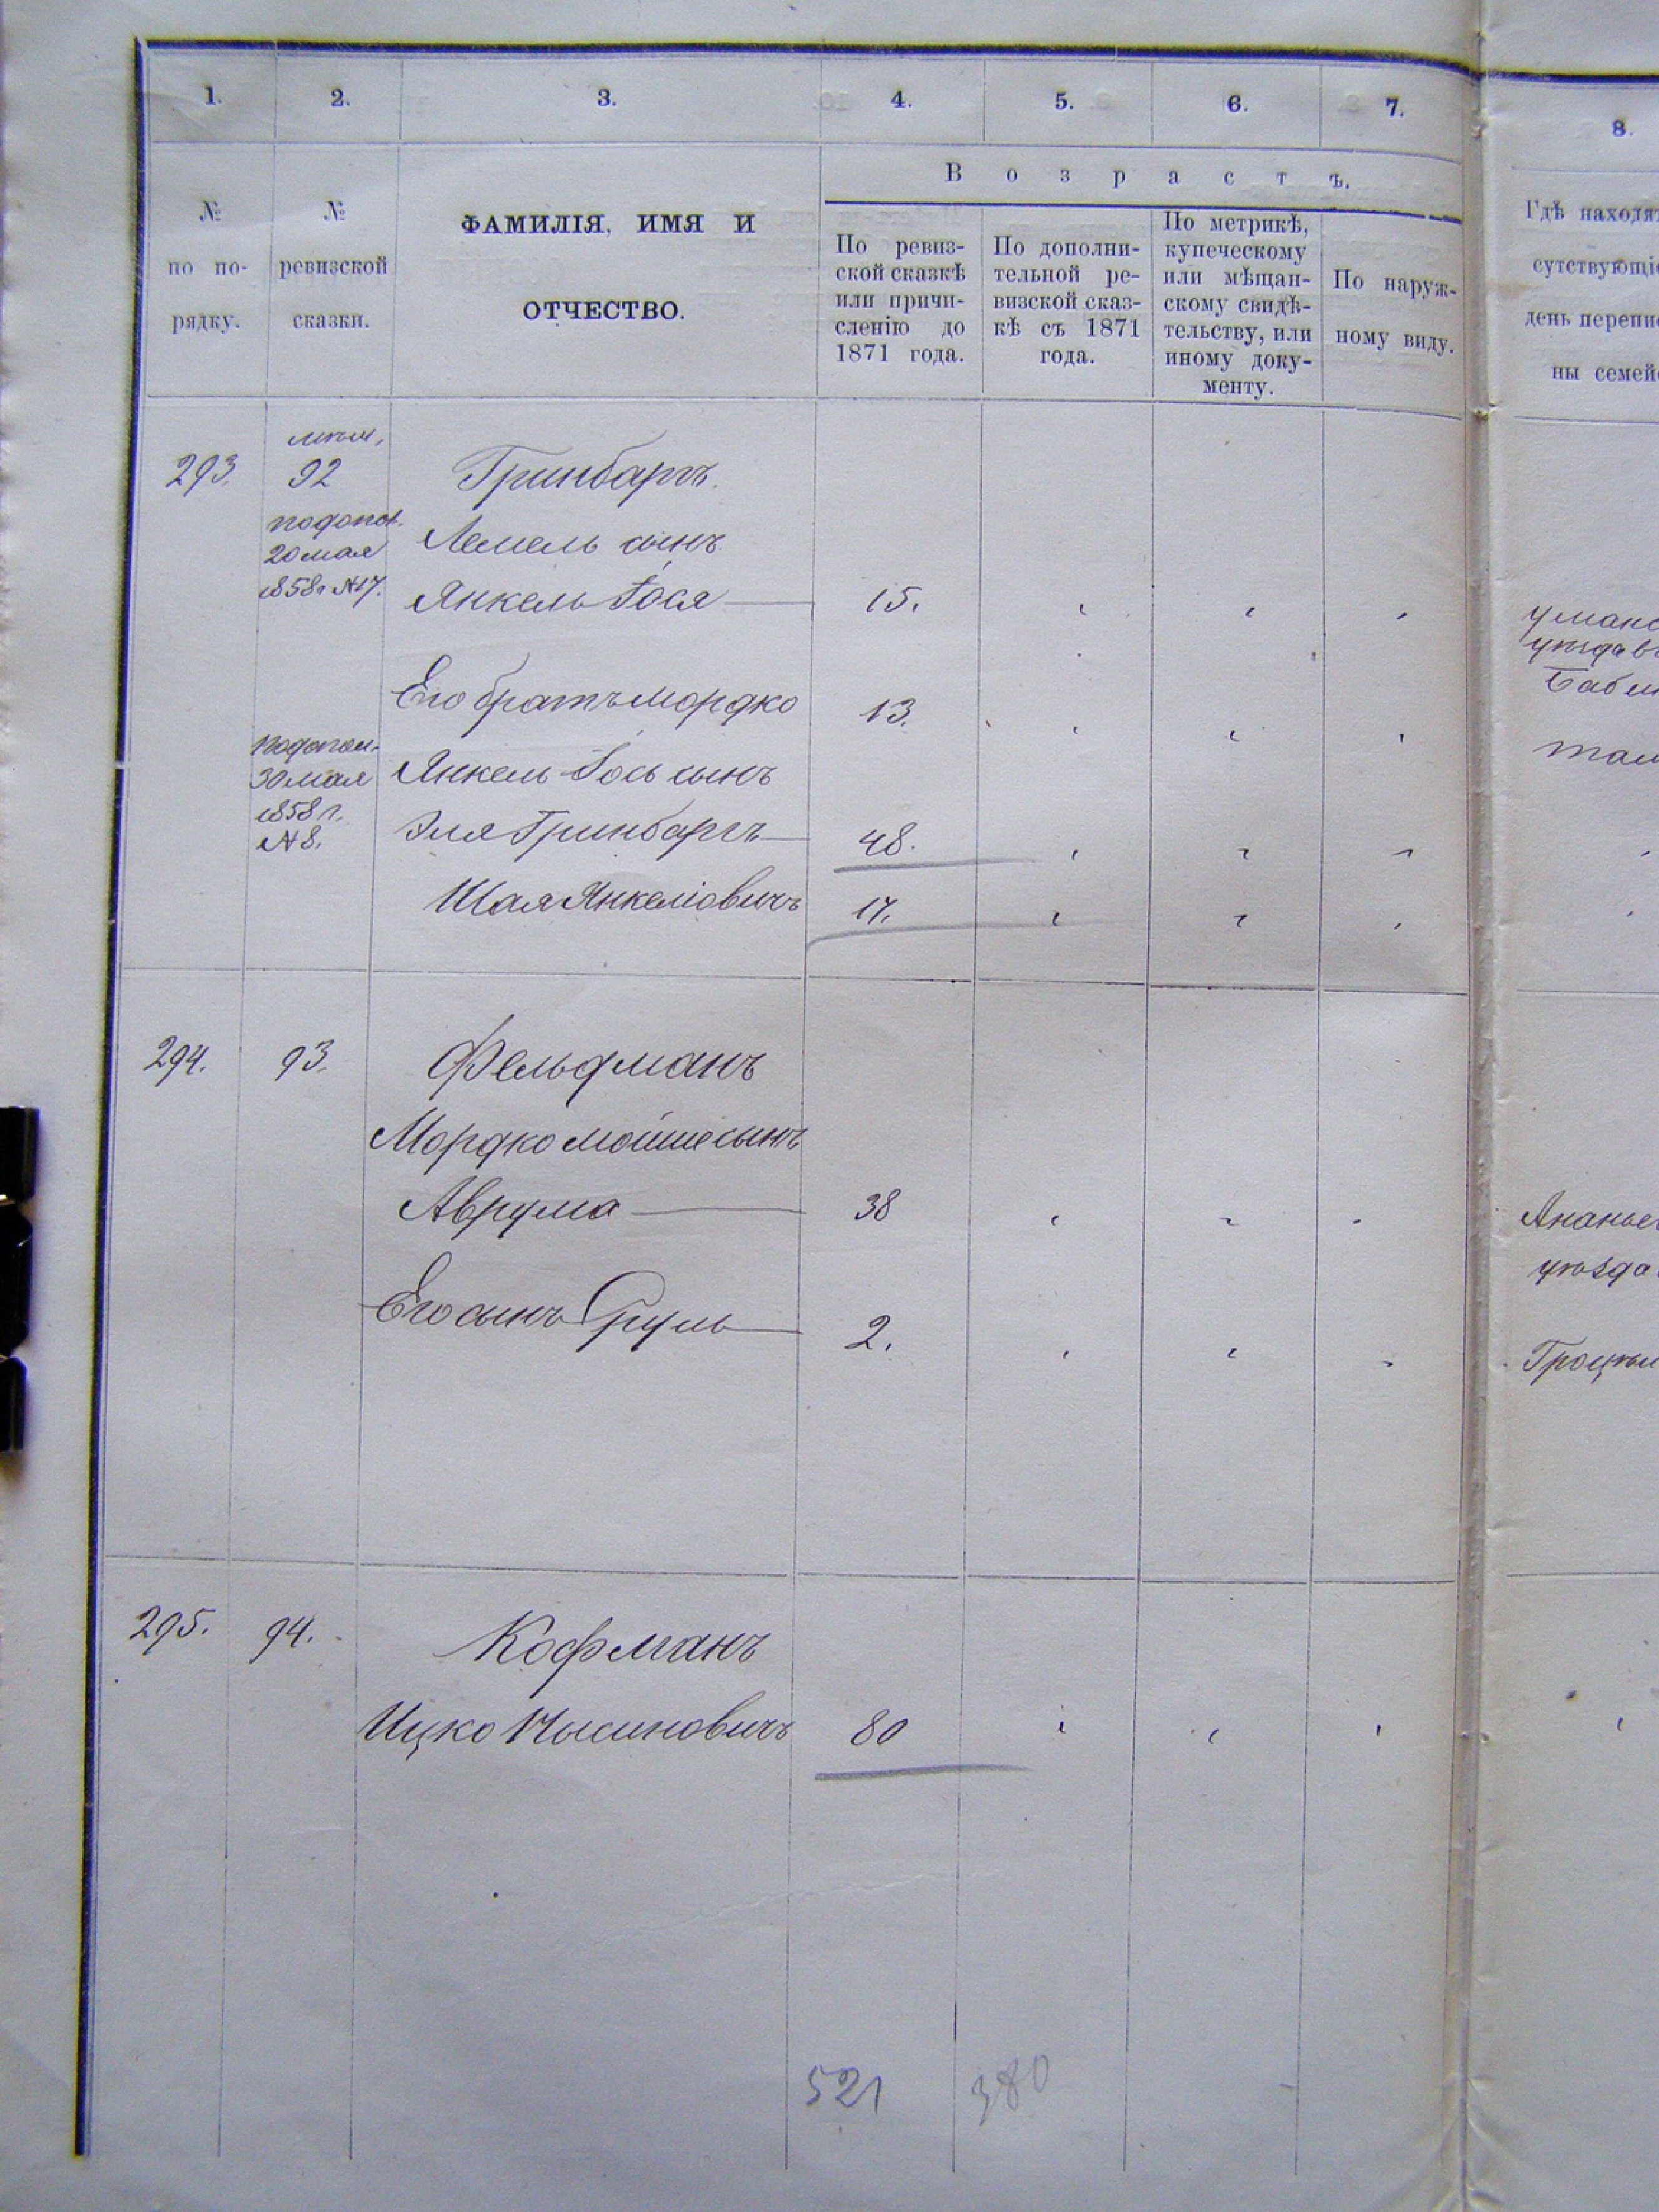 1. 2. 3. 4. 5. 6. 7. 8.
В о з р а с т ъ.
№
по по-
рядку.
№
ревизской
сказки.
ФАМИЛІЯ, ИМЯ И
ОТЧЕСТВО.
По ревиз-
ской сказкѣ
или причи-
сленію до
1871 года.
По дополни-
тельной ре-
визской сказ-
кѣ съ 1871
года.
По метрикѣ,
купеческому
или мѣщан-
скому свидѣ-
тельству, или
иному доку-
менту.
По наруж-
ному виду.
Гдѣ находят
сутствующіе
день перепис
ны семей
293. 92 Гринбаргъ.
20 мая
1858 г №17.
Лемель сынъ
Янкель Іося 15.
Его братъ Мордко 13.
30 мая
1858 г.
№ 8.
Янкель Іось сынъ
Эля Гринбаргъ 48.
Шая Янкеліовичъ 17.
294. 93. Фельдманъ
Мордко Мошие сынъ
Аврума 38
Его сынъ Сруль 2.
295. 94. Кофманъ
Ицко Нысиновичъ 80
521 380